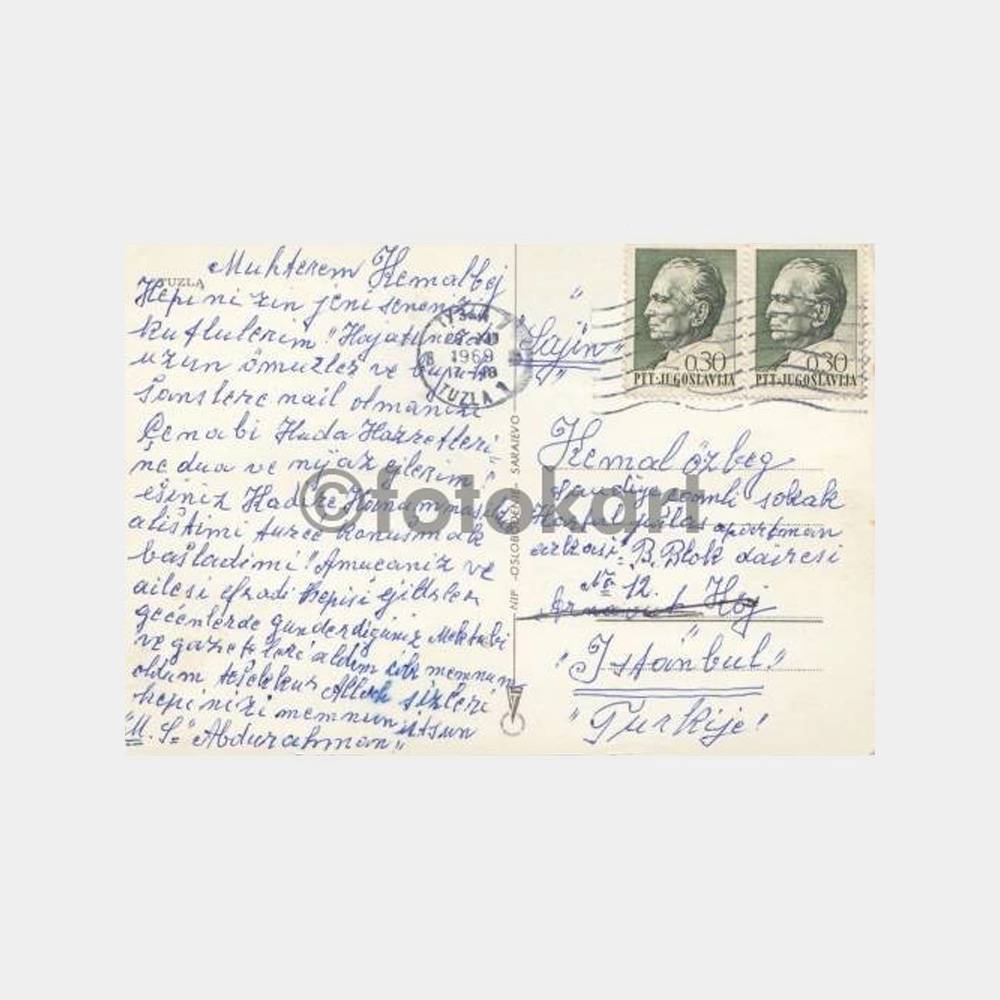 TUZLA
Muhterem Kemalbej
Hepinizin jeni senenizi
kutlulerim! Hajatinezde
uzun ömürler ve büjük
šanslere nail olmanizi
Çenabi Huda Hazretleri
ne dua ve nijaz ejlerim!
ešiniz Hanumn
alištimi turce konusmak
bašladimi! Amucaniz ve
ailesi efradi hepisi ejidirler
gećenlerde gunderdiginiz Mektubi
ve gazeteleri aldim čok memnun
oldum tešekkur Allah sizleri
hepinizi memnun etsun
"M. S." Abdurahman"
TUZLA 1
1969
NIP - OSLOBOĐENJE - SARAJEVO
"Sajin"
0.30
PTT-JUGOSLAVIJA
0.30
PTT-JUGOSLAVIJA
Kemal özbeg
Saadiye sokak
apartman
arkasi B. Blok dairesi
No 12.
Arnavut Köj
"Istanbul"
"Turkije!
©fotokart